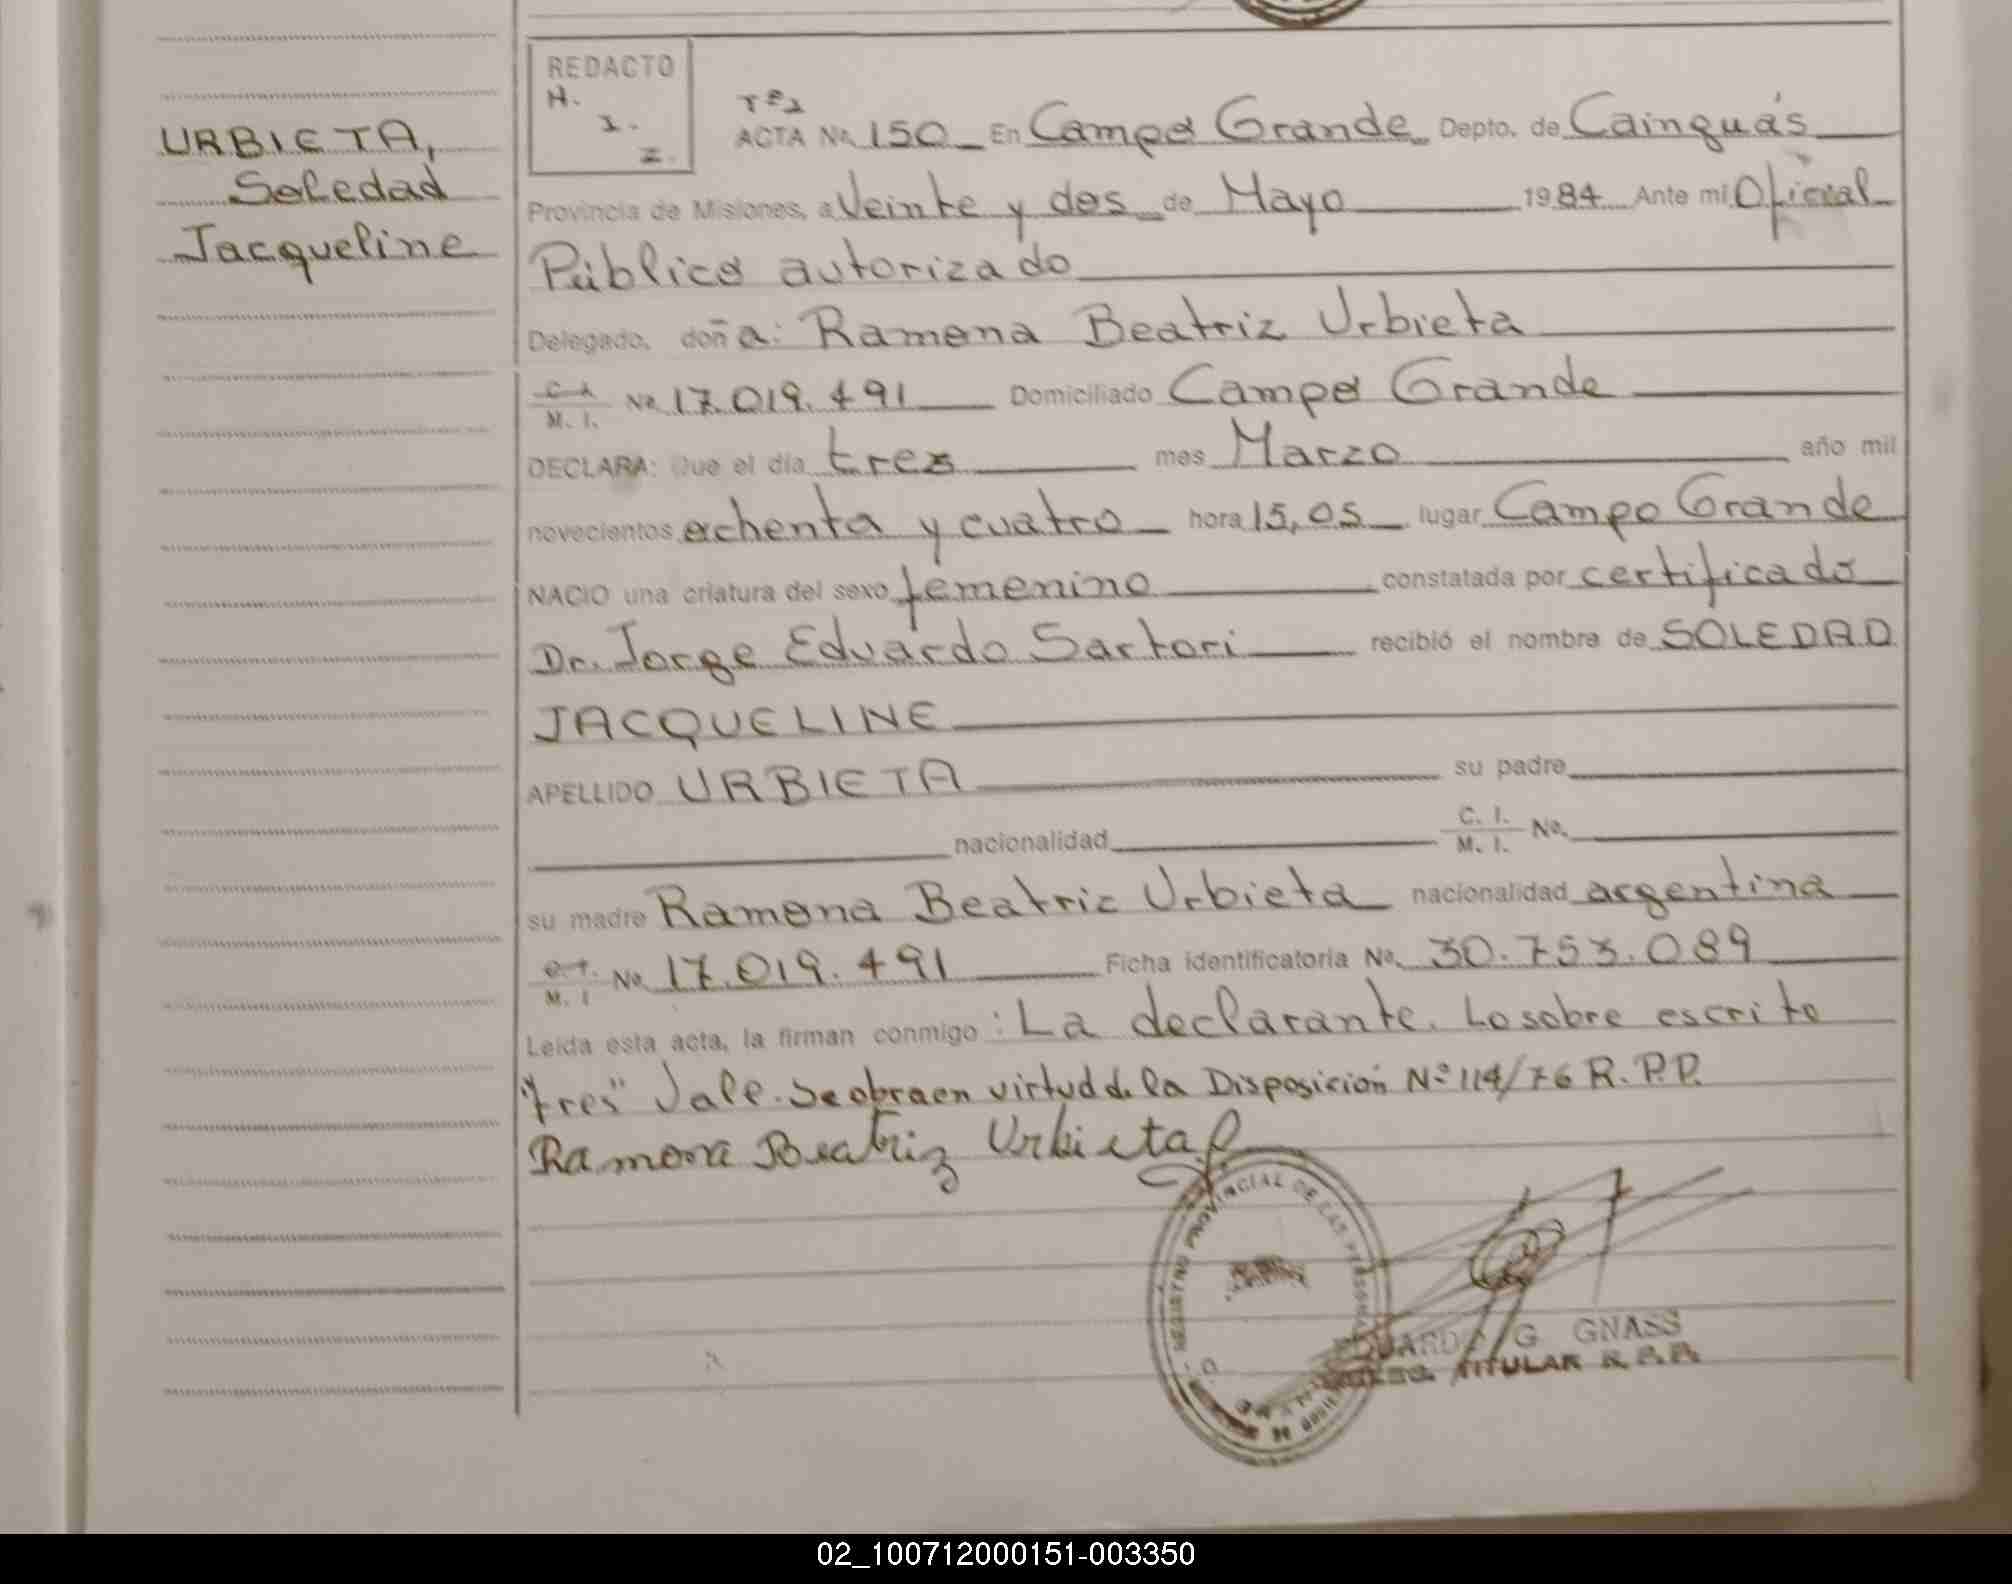 URBIETA,
Soledad
Jacqueline
REDACTO
H.
I.
Z.
Tº2
ACTA No. 150 En Campo Grande Depto. de Cainguás
Provincia de Misiones, a Veinte y dos de Mayo 1984 Ante mi Oficial
Público autorizado
Delegado, doña: Ramona Beatriz Urbieta
C. I. / M. I. No. 17.019.491 Domiciliado Campo Grande
DECLARA: Que el día tres mes Marzo año mil
novecientos ochenta y cuatro hora 15,05 lugar Campo Grande
NACIO una criatura del sexo femenino constatada por certificado
Dr. Jorge Eduardo Sartori recibió el nombre de SOLEDAD
JACQUELINE
APELLIDO URBIETA su padre
nacionalidad C. I. / M. I. No.
su madre Ramona Beatriz Urbieta nacionalidad argentina
C. I. / M. I No. 17.019.491 Ficha identificatoria No. 30.753.089
Leída esta acta, la firman conmigo: La declarante. Lo sobre escrito
"tres" Vale. Se obra en virtud de la Disposición Nº 114/76 R.P.P.
Ramona Beatriz Urbieta
REGISTRO PROVINCIAL DE LAS PERSONAS
EDUARDO G. GNASS
TITULAR R.P.P.
02_100712000151-003350